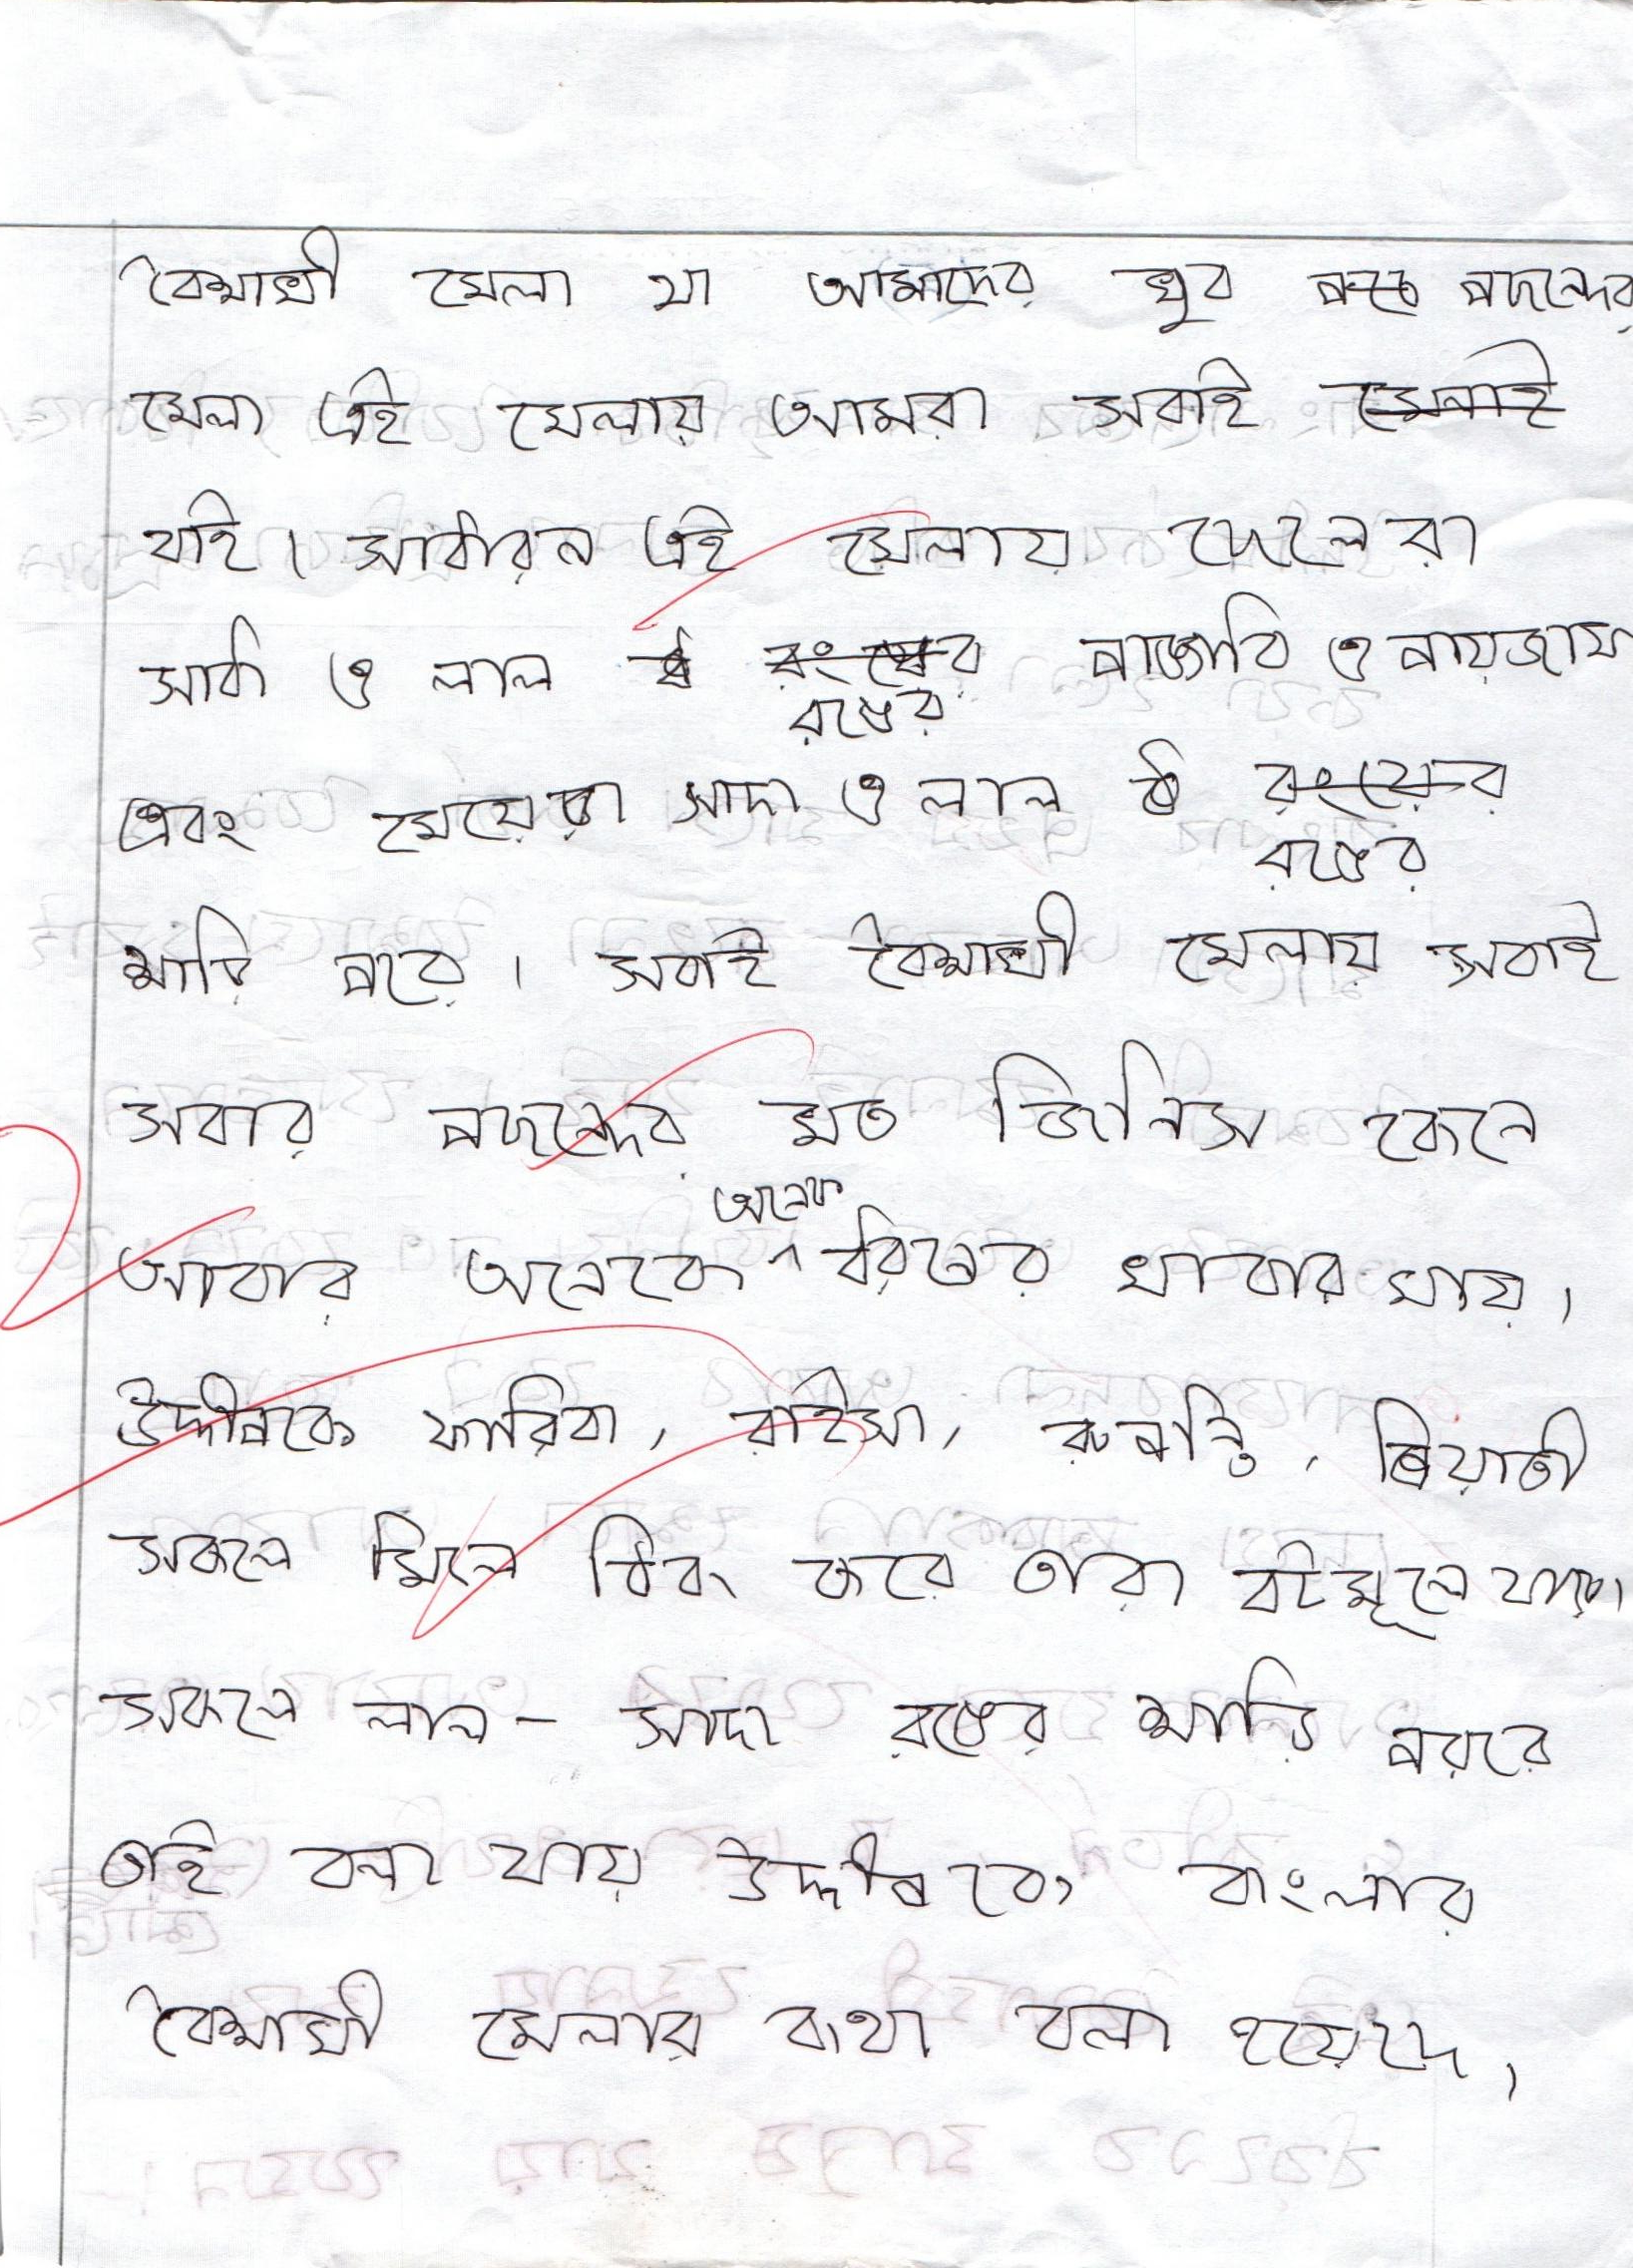 বৈশাখী মেলা যা আমাদের খুব পছন্দের
মেলা এই মেলায় আমরা সবাই মেলাই
যাই। সাধারন এই মেলায় ছেলেরা
সাদা ও লাল রংয়ের পাঞ্জাবি ও পায়জামা
রঙের
এবং মেয়েরা সাদা ও লাল রংয়ের
রঙের
শাড়ি পরে। সবাই বৈশাখী মেলায় সবাই
সবার পছন্দের মত জিনিস কেনে
অনেক
আবার অনেকে ধরনের খাবার খায়।
উদ্দীপকে ফারিবা, রাইসা, রুপান্তি, প্রিয়াতী
সকলে মিলে ঠিক করে তারা বটমূলে যাবে।
সকলে লাল - সাদা রঙের শাড়ি পররে
তাই বলা যায় উদ্দীপকে বাংলার
বৈশাখী মেলার কথা বলা হয়েছে।